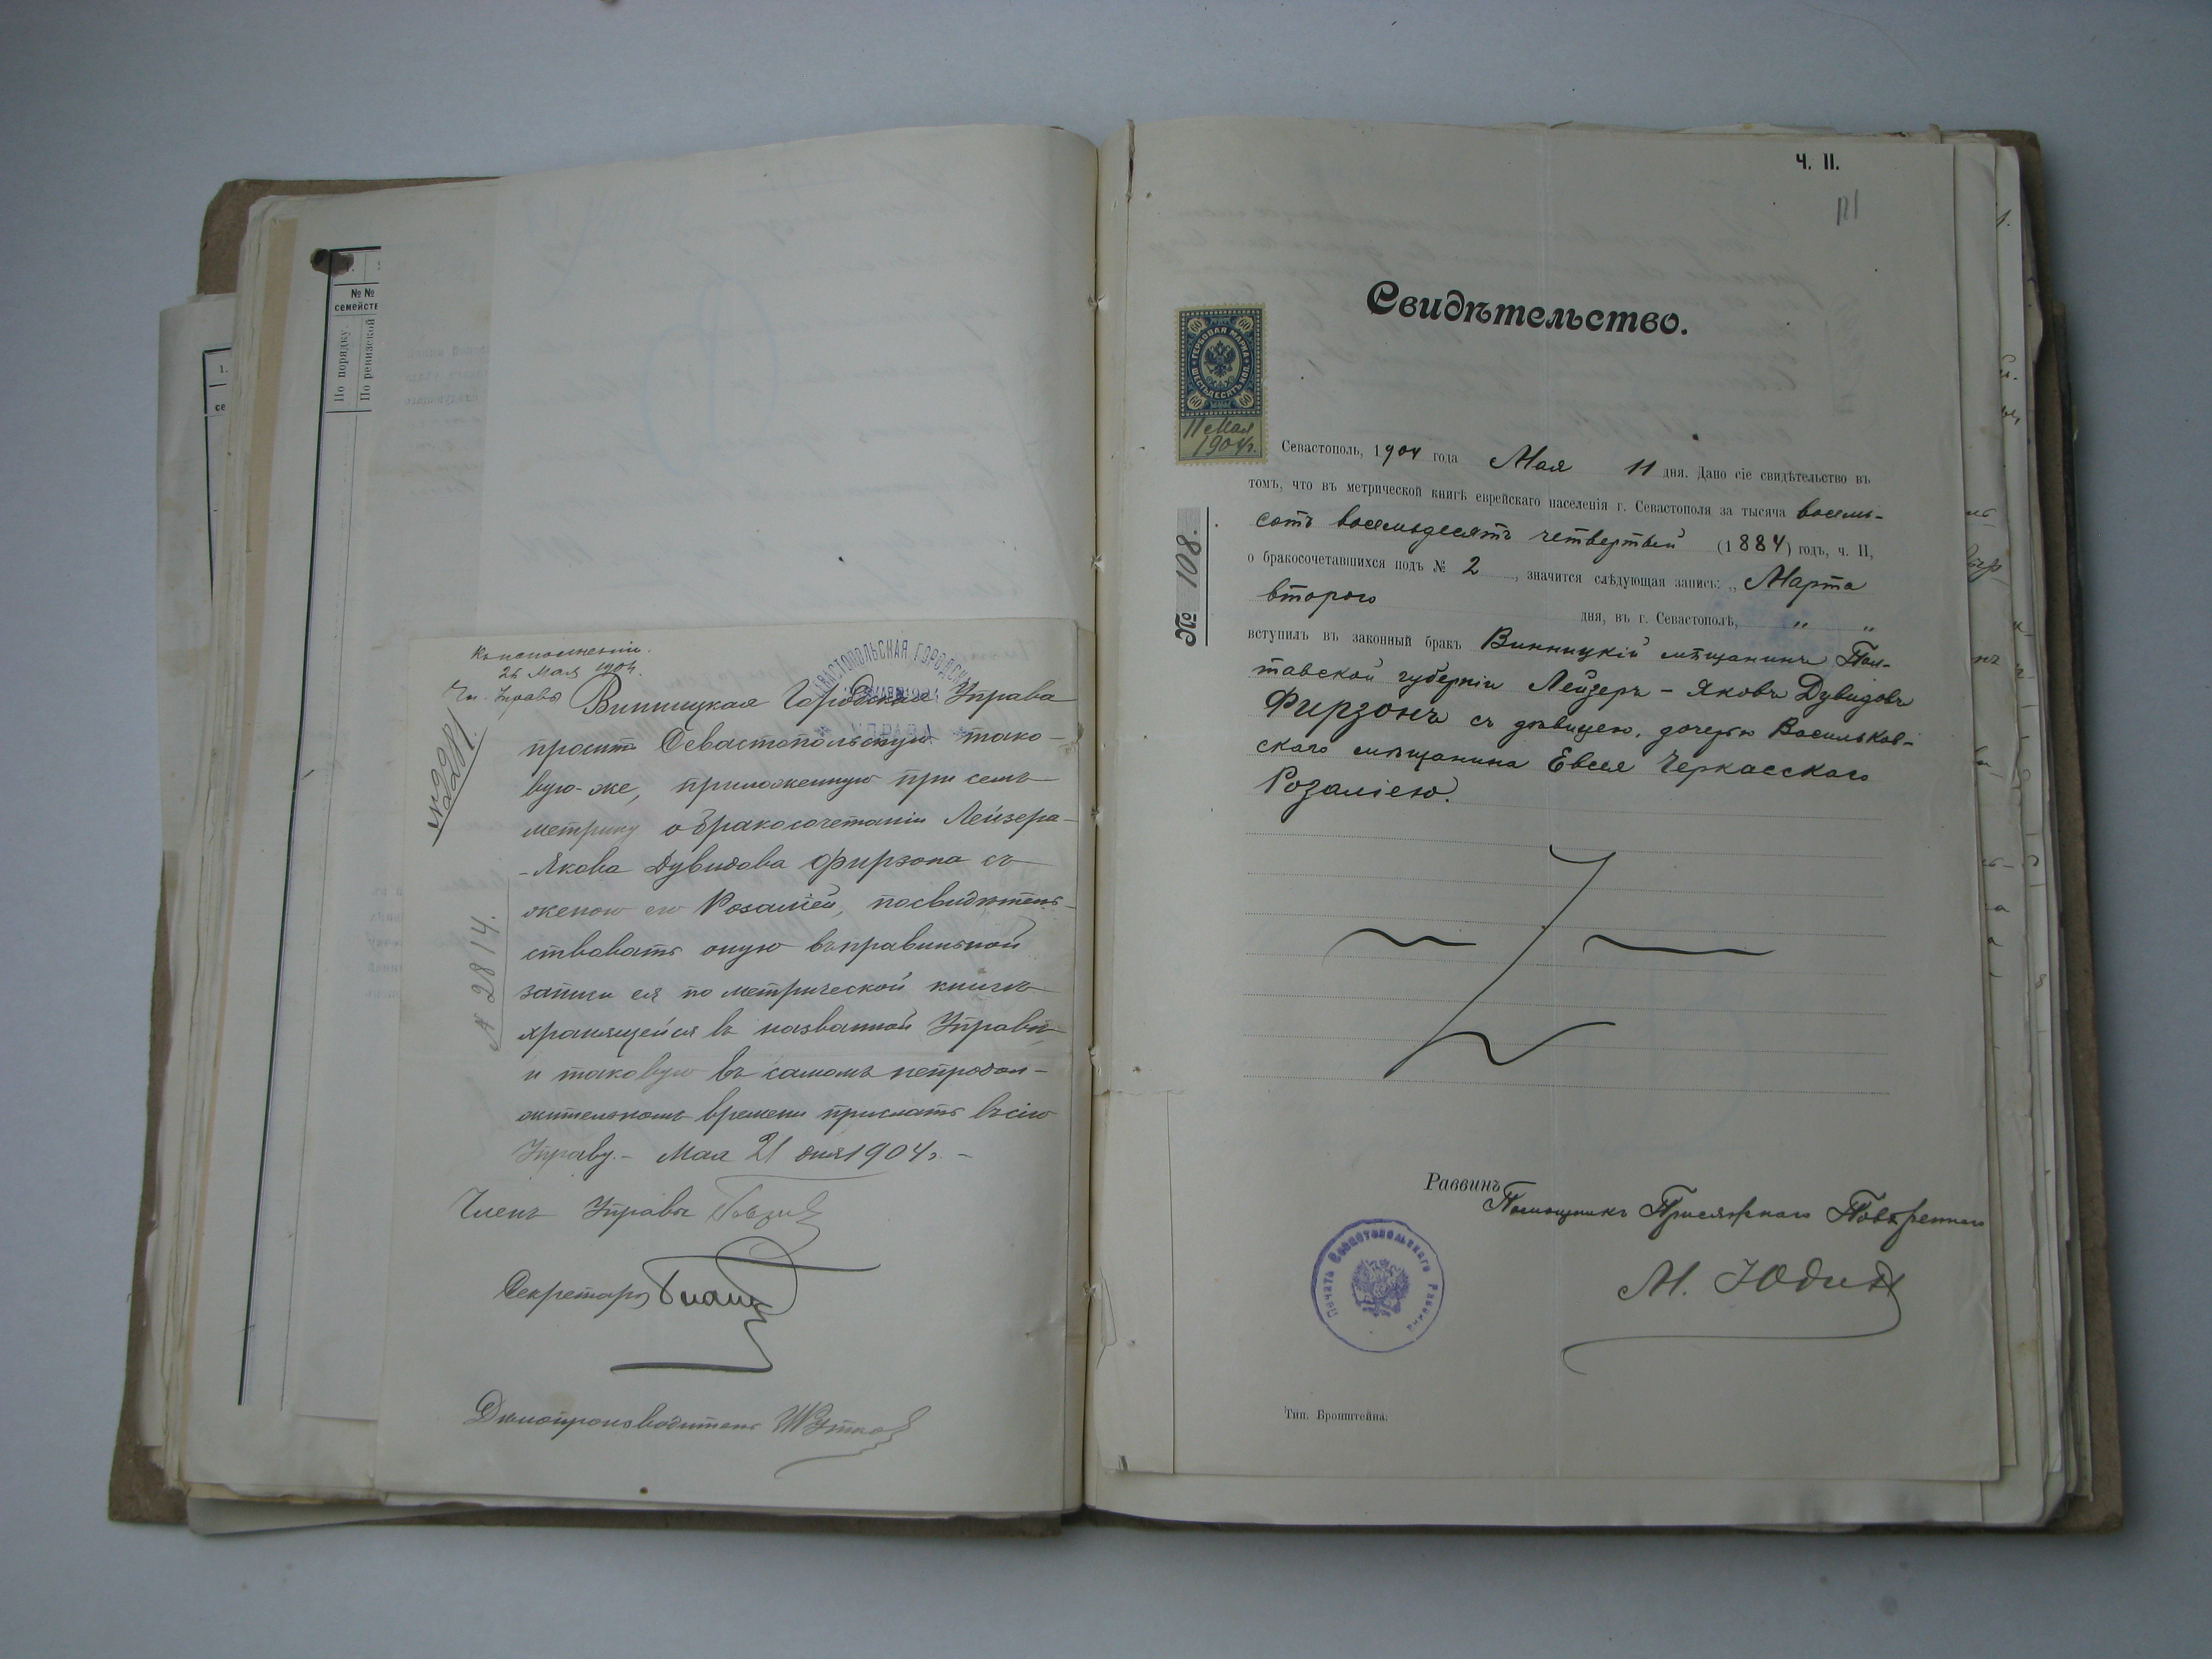 № №
семейств
По порядку.
По ревизской
1.
се
Къ исполненію.
26 Мая 1904
Чл. Управы
СЕВАСТОПОЛЬСКАЯ ГОРОДСКАЯ
УПРАВА
Винницкая Городская Управа
проситъ Севастопольскую тако-
вую-же, приложенную при семъ
метрику о бракосочетаніи Лейзера-
-Якова Дувидова Фирзона съ
женою его Розаліей, посвидѣтель-
ствовать оную въ правильной
записи ея по метрической книгѣ
хранящейся въ названной Управѣ
и таковую въ самомъ непродол-
жительномъ времени прислать въ сію
Управу. - Мая 21 дня 1904 г. -
№ 2814.
Членъ Управы
Секретарь
Дѣлопроизводитель
Ч. II.
Свидѣтельство.
60 60
ГЕРБОВАЯ МАРКА
ШЕСТЬДЕСЯТЪ КОП.
60 60
11 Мая
1904 г.
№ 108.
Севастополь, 1904 года Мая 11 дня. Дано сіе свидѣтельство въ
томъ, что въ метрической книгѣ еврейскаго населенія г. Севастополя за тысяча восемь-
сотъ восемьдесятъ четвертый (1884) годъ, ч. II,
о бракосочетавшихся подъ № 2, значится слѣдующая запись: „Марта
второго дня, въ г. Севастополѣ, „ „
вступилъ въ законный бракъ Винницкій мѣщанинъ Пол-
тавской губерніи Лейзеръ-Яковъ Дувидовъ
Фирзонъ съ дѣвицею, дочерью Васильков-
скаго мѣщанина Евсея Черкасскаго
Розаліею.
Раввинъ
Помощникъ Присяжнаго Повѣреннаго
М. Юдинъ
Печать Севастопольскаго Раввина
Тип. Бронштейна.